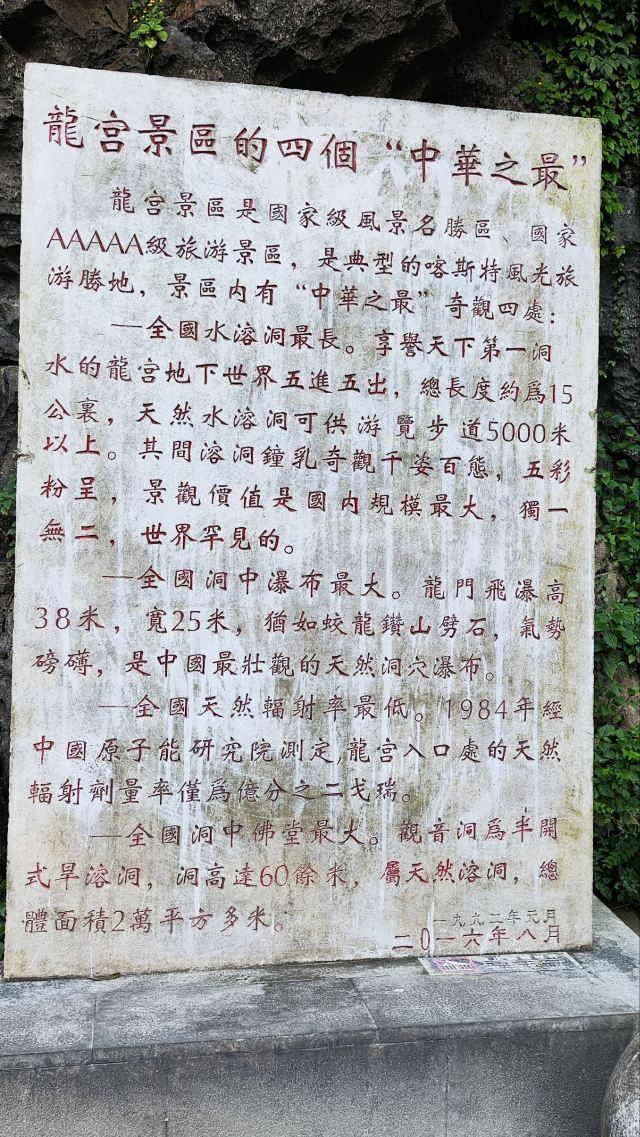 龍宮景區的四個“中華之最”
龍宮景區是國家級風景名勝區、國家
AAAAA級旅游景區，是典型的喀斯特風光旅
游勝地，景區内有“中華之最”奇觀四處：
—全國水溶洞最長。享譽天下第一洞
水的龍宮地下世界五進五出，總長度約爲15
公裏，天然水溶洞可供游覽步道5000米
以上。其間溶洞鐘乳奇觀千姿百態，五彩
粉呈，景觀價值是國内規模最大，獨一
無二，世界罕見的。
—全國洞中瀑布最大。龍門飛瀑高
38米，寬25米，猶如蛟龍鑽山劈石，氣勢
磅礴，是中國最壯觀的天然洞穴瀑布。
—全國天然輻射率最低。1984年經
中國原子能研究院測定,龍宮入口處的天然
輻射劑量率僅爲億分之二戈瑞。
—全國洞中佛堂最大。觀音洞爲半開
式旱溶洞，洞高達60餘米，屬天然溶洞，總
體面積2萬平方多米。
一九九二年元月
二0一六年八月